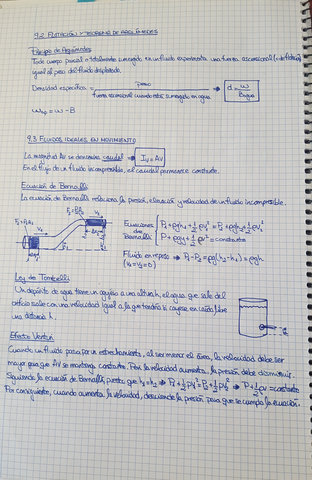 9.2 FLOTACIÓN y TEOREMA DE ARQUÍMEDES
Principio de Arquímedes
Todo cuerpo parcial o totalmente sumergido en un fluido experimenta una fuerza ascensional
igual al peso del fluido desplazado.
Densidad específica = peso / fuerza ascensional cuando está sumergido en agua → d = W / Bagua
= W - B
9.3 FLUIDOS IDEALES EN MOVIMIENTO
La magnitud Av se denomina caudal → Iv = Av
En el flujo de un fluido incompresible, el caudal permanece constante.
Ecuación de Bernoulli
La ecuación de Bernoulli relaciona la presión, elevación y velocidad de un fluido incompresible.
F2 = P2A2
F1 = P1A1
Ecuaciones de Bernoulli
P1 + ρgh1 + 1/2 ρv1² = P2 + ρgh2 + 1/2 ρv2²
P + ρgy + 1/2 ρv² = constante
Fluido en reposo → P1 - P2 = ρg(h2 - h1) = ρgh
(V1 = V2 = 0)
Ley de Torricelli
Un depósito de agua tiene un orificio a una altura h, el agua que sale del
orificio sale con una velocidad igual a la que tendría si cayese en caída libre
una distancia h.
Efecto Venturi
Cuando un fluido pasa por un estrechamiento, al ser menor el área, la velocidad debe ser
mayor para que Av se mantenga constante. Pero la velocidad aumenta, la presión debe disminuir.
Siguiendo la ecuación de Bernoulli, puesto que h1 = h2 → P1 + 1/2 ρv1² = P2 + 1/2 ρv2² → P + 1/2 ρv = constante
Por consiguiente, cuando aumenta la velocidad, desciende la presión para que se cumpla la ecuación.